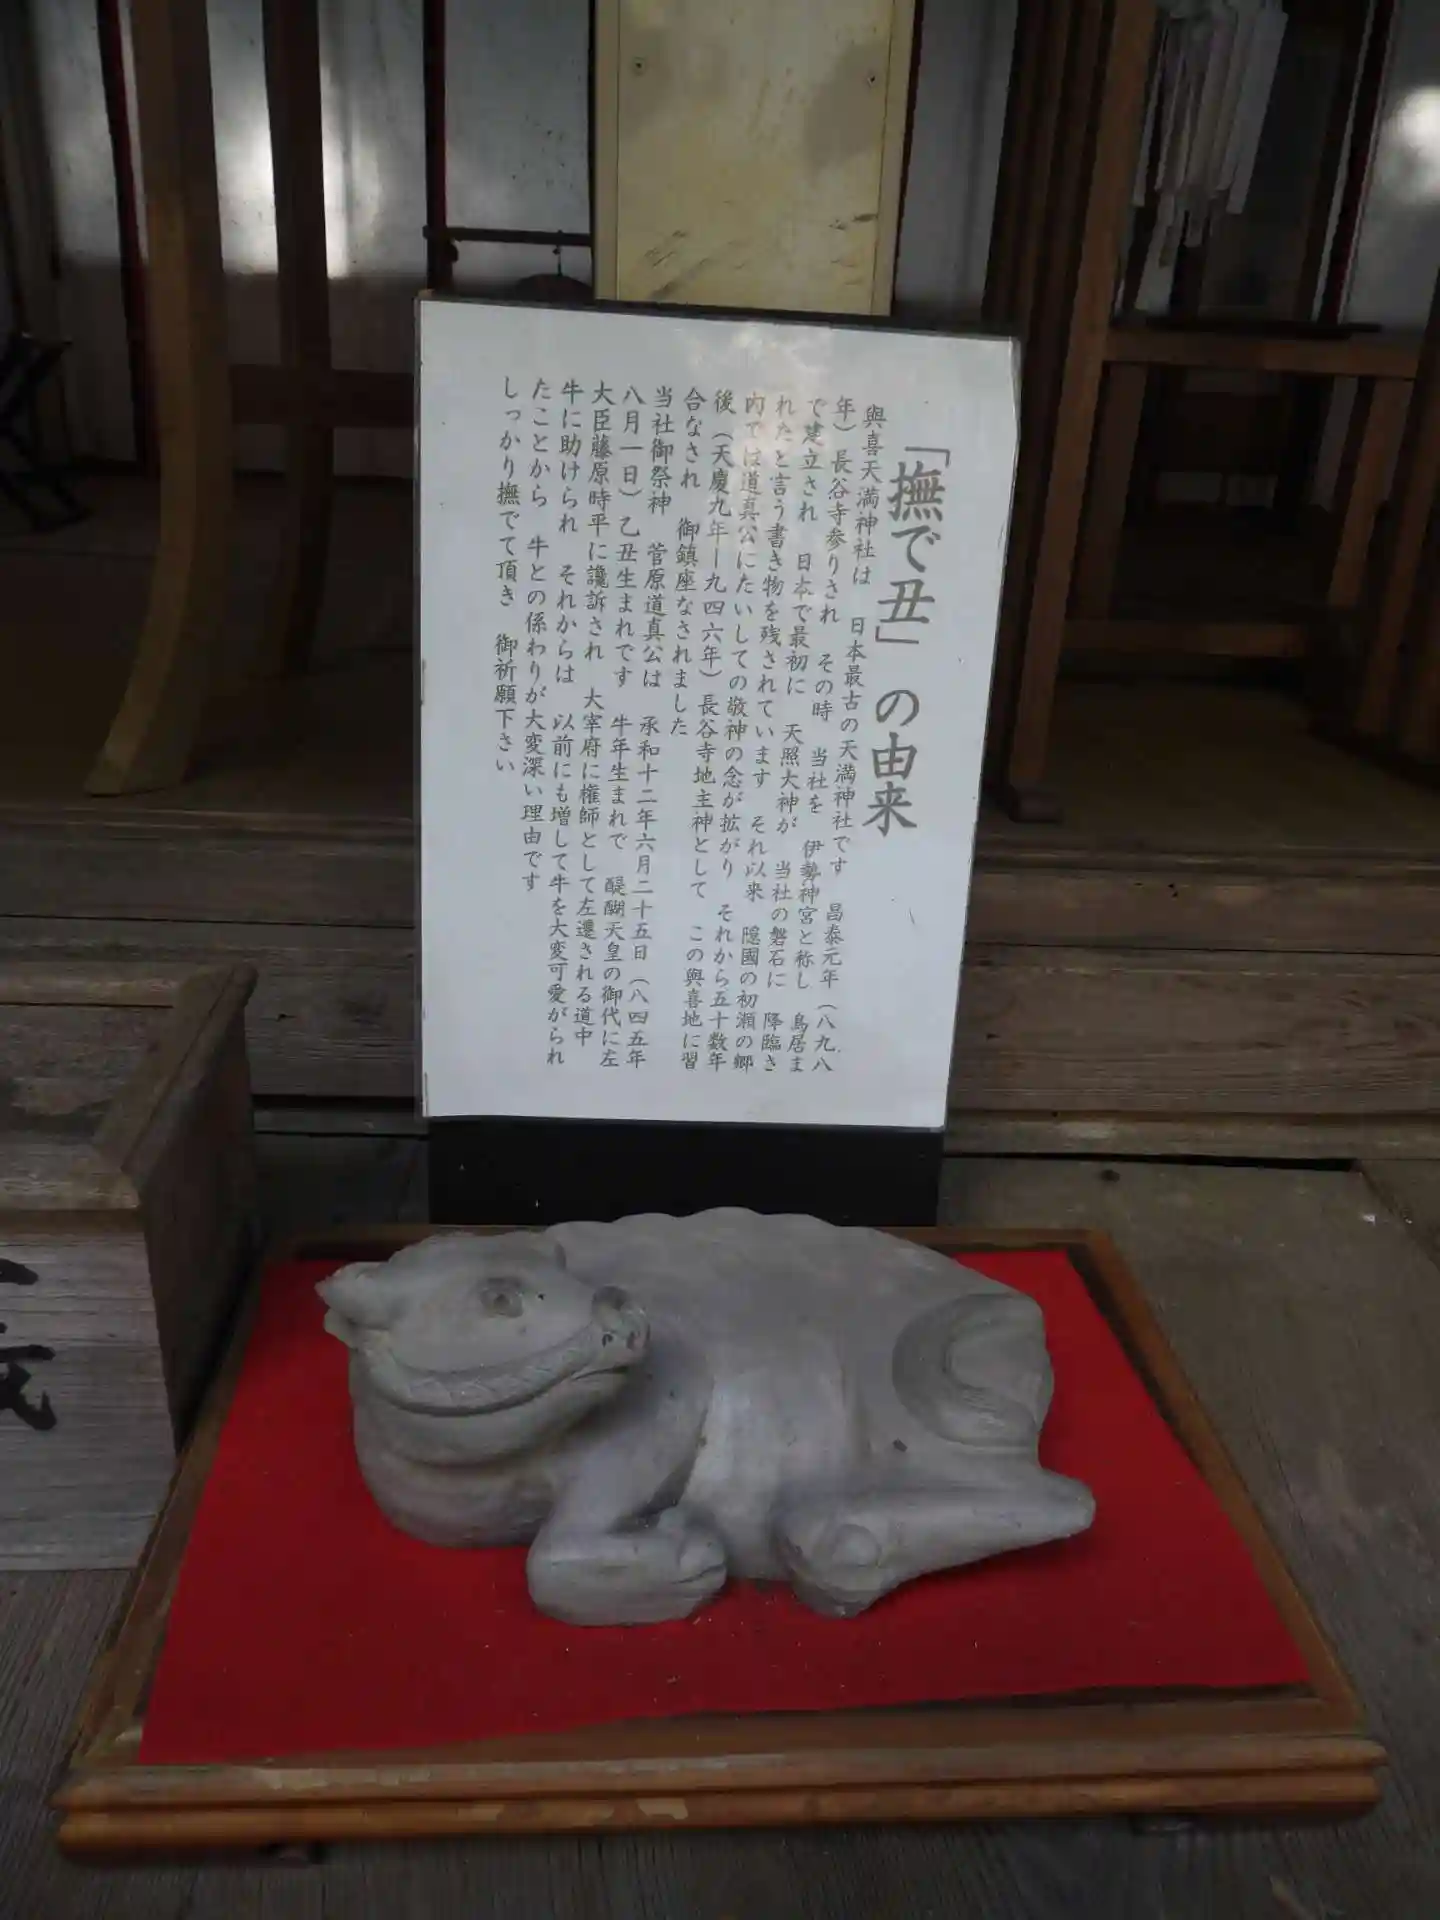 「撫で丑」の由来
與喜天満神社は　日本最古の天満神社です　昌泰元年（八九八
年）長谷寺参りされ　その時　当社を　伊勢神宮と称し　鳥居ま
で建立され　日本で最初に　天照大神が　当社の磐石に　降臨さ
れたと言う書き物を残されています　それ以来　隠國の初瀬の郷
内では道真公にたいしての敬神の念が拡がり　それから五十数年
後（天慶九年ー九四六年）長谷寺地主神として　この與喜地に習
合なされ　御鎮座なされました
当社御祭神　菅原道真公は　承和十二年六月二十五日（八四五年
八月一日）乙丑生まれです　牛年生まれで　醍醐天皇の御代に左
大臣藤原時平に讒訴され　大宰府に権師として左遷される道中
牛に助けられ　それからは　以前にも増して牛を大変可愛がられ
たことから　牛との係わりが大変深い理由です
しっかり撫でて頂き　御祈願下さい